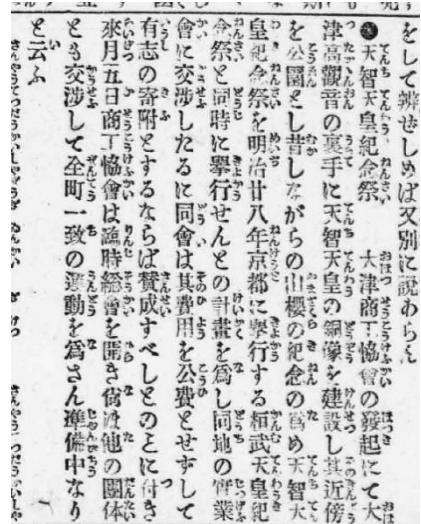 をして辨ぜしめば又別に説わらん
●天智天皇紀念祭　大津商工協會の發起にて大
津高觀音の裏手に天智天皇の銅像を建設し其近傍
を公園とし昔しながらの山櫻の紀念の爲め天智大
皇紀念祭を明治廿八年京都に擧行する桓武天皇紀
念祭と同時に擧行せんとの計畫を爲し同地の實業
會に交渉したるに同會は其費用を公費とせずして
有志の寄附とするならば賛成すべしとのとに付き
來月五日商工協會は臨時總會を開き尚ほ他の團体
とも交渉して全町一致の運動を爲さん準備中なり
と云ふ